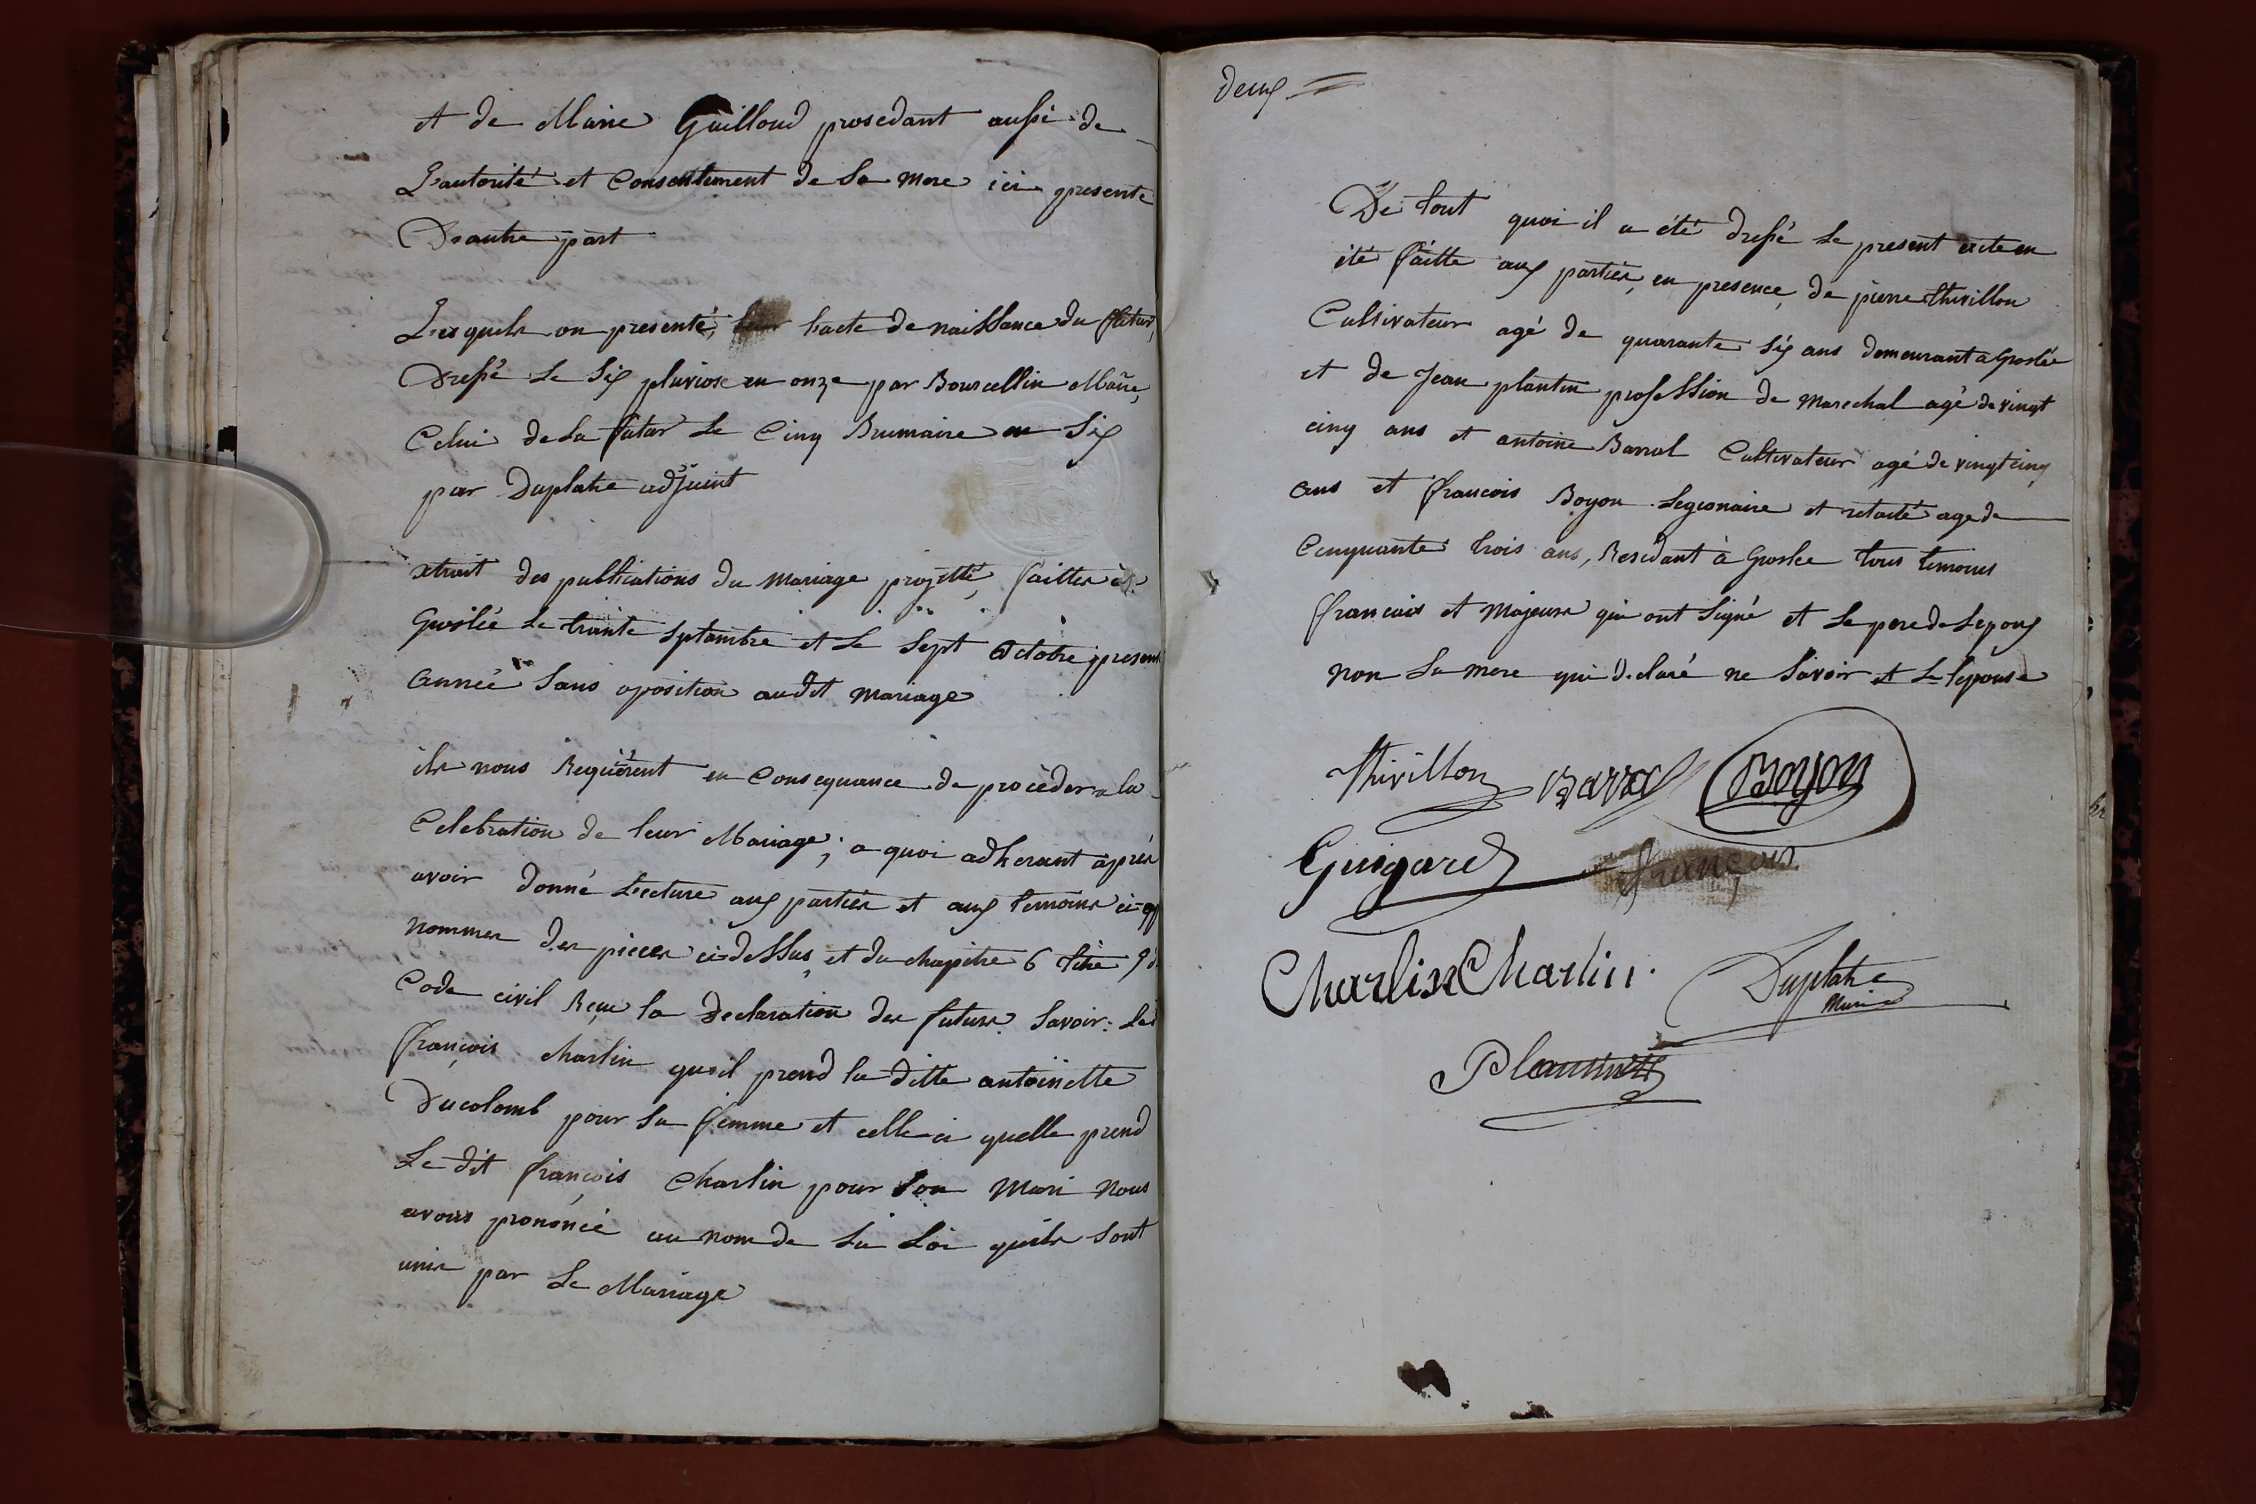 et de Marie Guilloud prosedant aussi de
L'autorité et Consentement de Sa mere ici presente
D'autre part
Lesquels on presenté, l'acte de naissance du futur,
Dressé Le Six pluviose en onze par Bourcellin Maire,
Celui de la futur Le Cinq Brumaire en Six
par Duplatre adjuint
xtrait des publications du Mariage projetté, faittes à
Groslée Le trante Septambre et Le Sept Octobre present
année Sans oposition audit mariage
ils nous Requièrent en Consequance de procèder a la
Celebration de leur Mariage; a quoi adherant après
avoir donné Lecture aux parties et aux temoins ci-ap
nommes des pieces ci-dessus, et du chapitre 6 titre 5 d
Code civil Reçu la Declaration des futurs Savoir: Led
françois charlin qu'il prend la ditte antoinette
Ducolomb pour Sa femme et celle ci quelle prend
Le dit françois Charlin pour Son Mari nous
avons prononcé au nom de La Loi quils Sont
unis par Le Mariage
Deux
De tout quoi il a été dressé Le present acte en
été faitte aux parties, en presence, de pierre thivillon
Cultivateur agé de quarante Six ans demeurant a Groslée
et de Jean plantin profession de marechal agé de vingt
cinq ans et antoine Barral Cultivateur agé de vingt cinq
ans et francois Boyon Legionaire et retraité age de
Cinquante trois ans, Residant à Groslee tous temoins
francais et Majeurs qui ont Signé et Le pere de Lepoux
non La mere qui declaré ne Savoir et Lepouse
thivillon Barral Boyon
Guigard françois
Charlin Charlin
Duplatre
Maire
Plantin